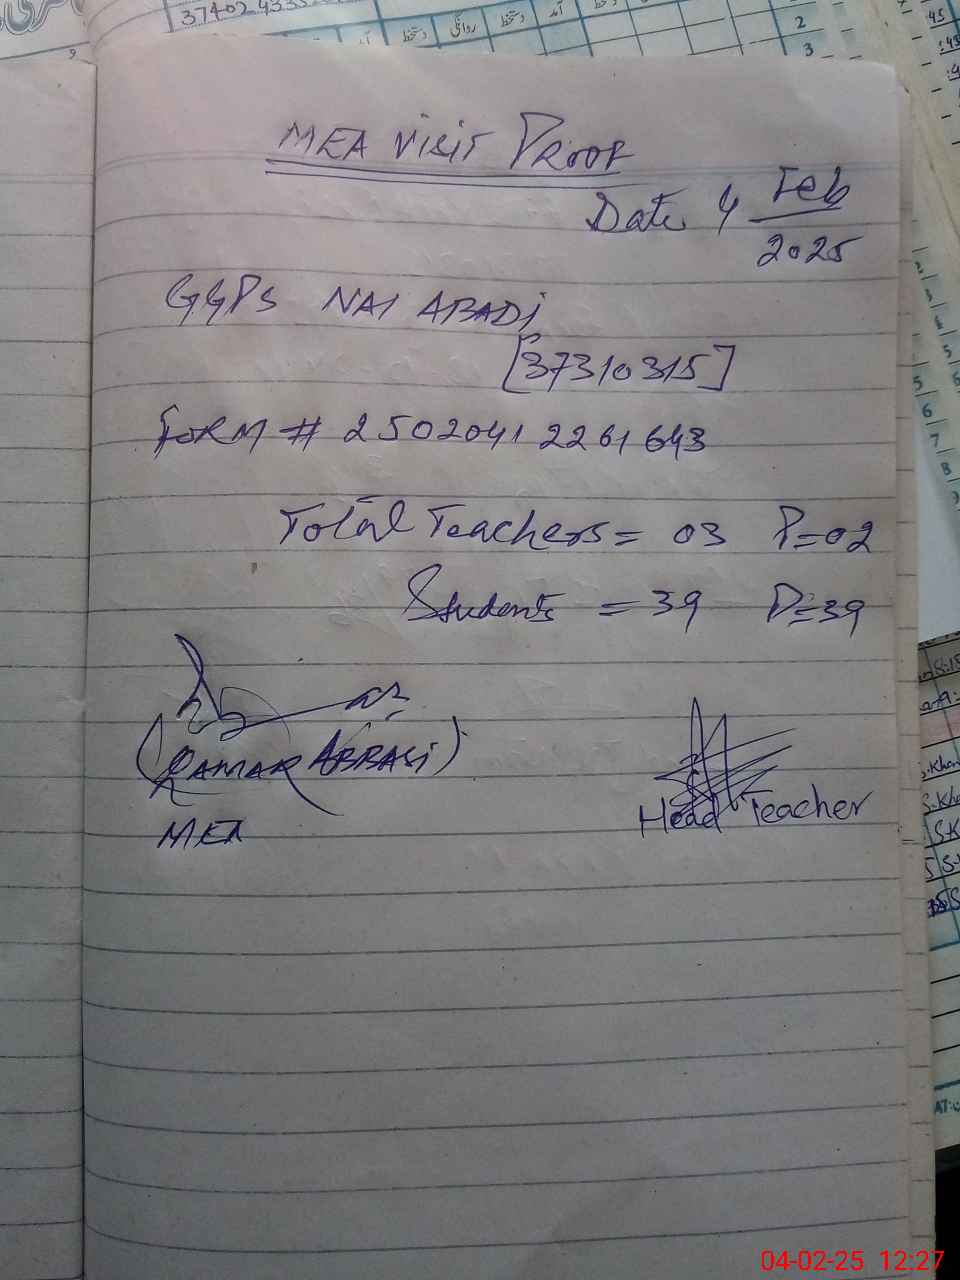 MEA Visit Proof
Date 4 Feb
2025
GGPS NAI ABADI
[37310315]
Form # 2502041 2261643
Total Teachers = 03 P=02
Students = 39 P=39
(QAMAR ABBASI)
MEA
Head Teacher
روانگی
دستخط
آمد
2
3
04-02-25 12:27